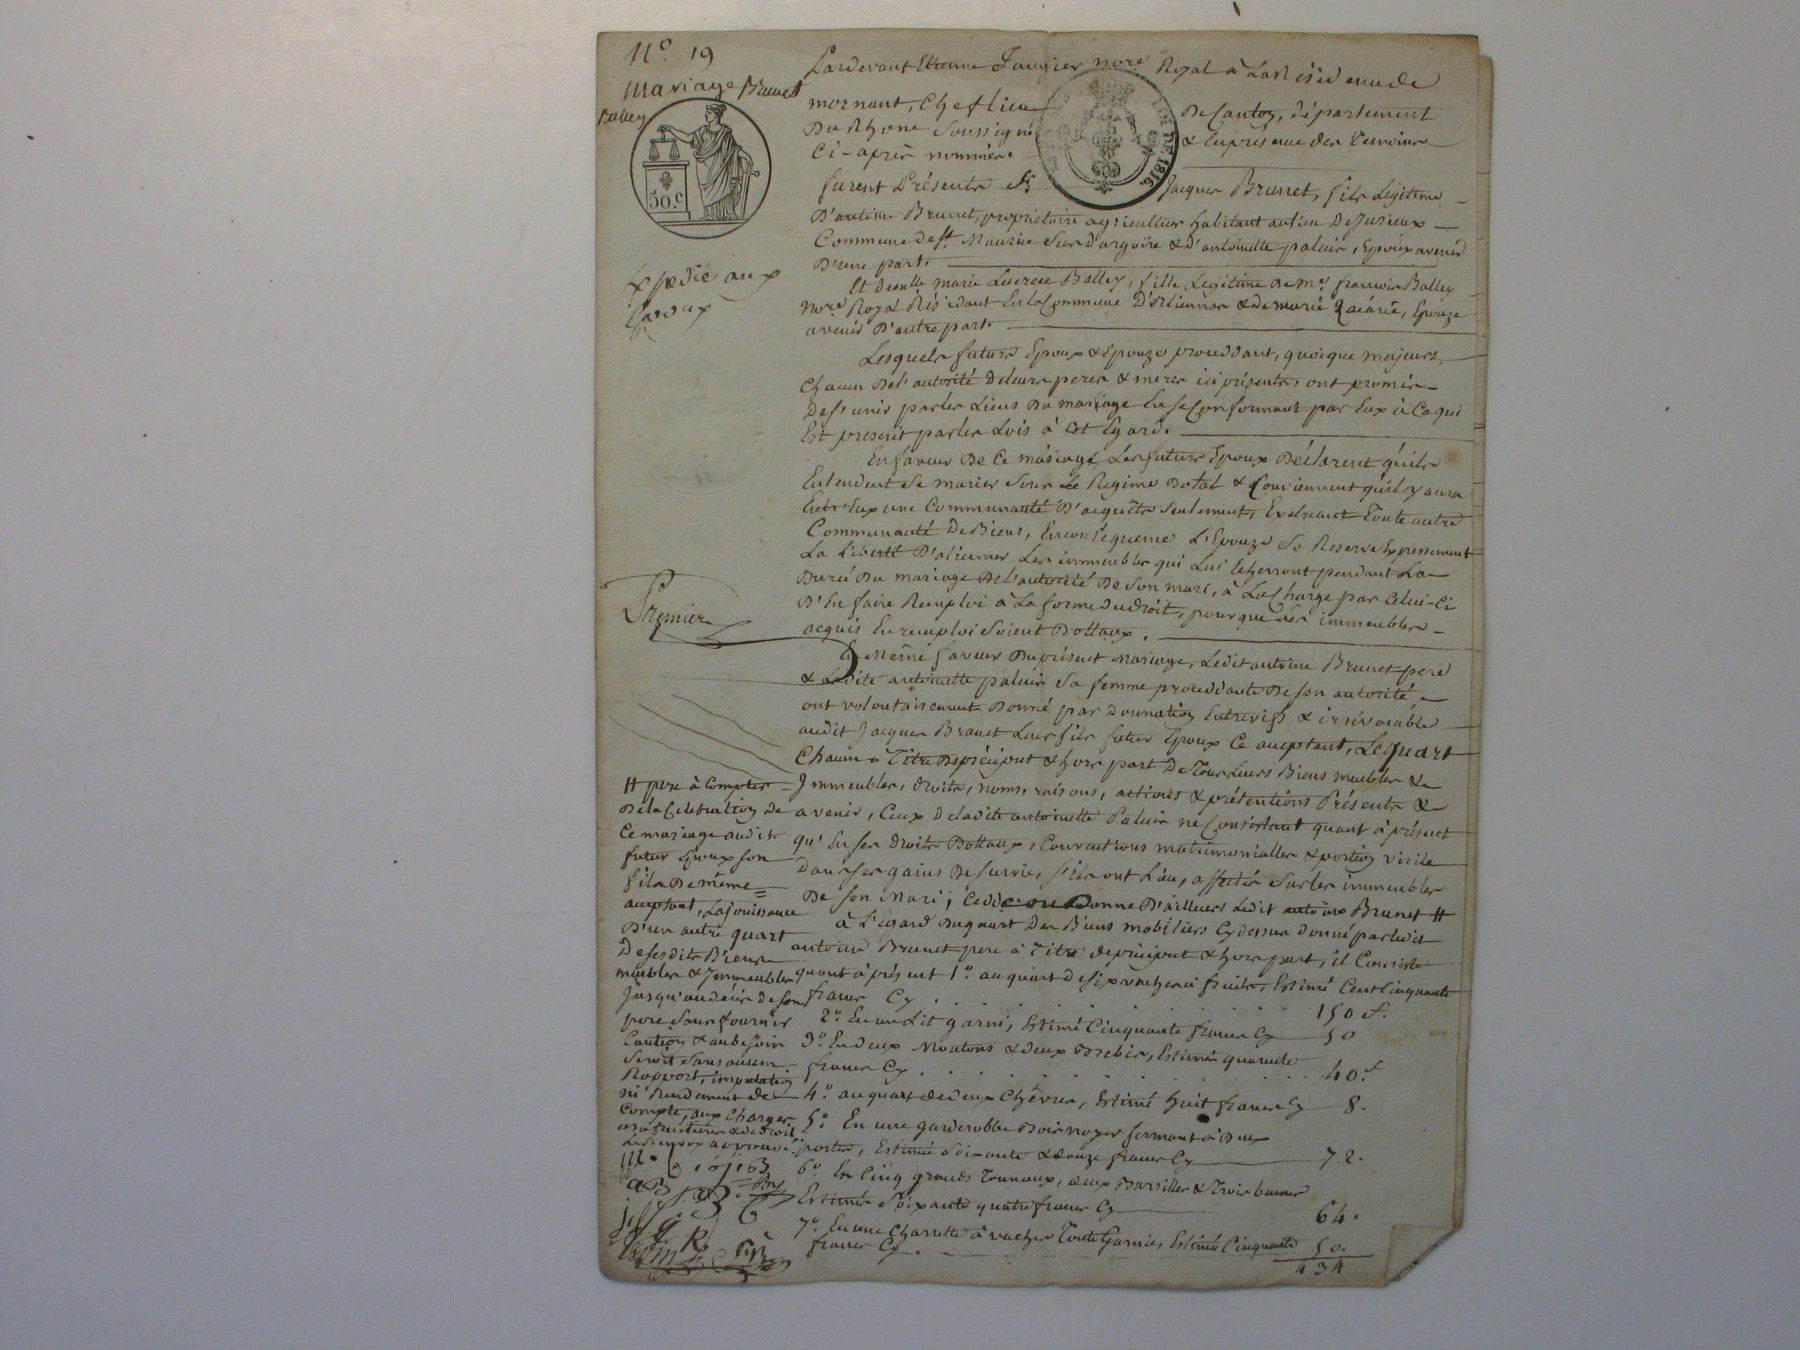 N.º 19
Mariage Brunet
Balley
50.c
LOI DE 1816.
Pardevant Etienne Faugier no.re Royal à La Résidence de
mornant, Cheflieu De Canton, département
Du Rhone Soussigné & En présence des Temoins
Ci-après nommés.
furent Présents Sr. Jacques Brunet, fils Légitime
D'antoine Brunet, propriétaire agriculteur habitant au lieu De Jurieux
Commune de St. Maurice Sur d'argoire & d'antoinette paluis, Epoux avenir
D'une part.
Et D.elle marie Lucrece Balley, fille Légitime De Me. francois Balley
No.re Royal Résidant En la Commune D'Orliennas & de marie Zacarie, Epouze
avenir D'autre part.
Expedié aux
Epoux
Lesquels futurs Epoux & Epouze procedant, quoique majeurs,
Chacun De l'autorité De leurs peres & meres ici présents, ont promis
De s'unir par les Liens Du mariage En se Conformant par Eux à Ce qui
Est prescrit par les Lois à Cet Egard.
En faveur De Ce mariage, Les futurs Epoux Déclarent qu'ils
Entendent Se marier Sous Le Regime Dotal & Conviennent qu'il y aura
Entr'Eux une Communauté D'acquêts Seulement, Excluant Toute autre
Communauté De Biens, En conséquence L'Epouze Se Reserve Expressement
La Liberté D'aliéner Les immeubles qui Lui Echerront pendant La
Durée Du mariage De l'autorité De Son mari, à La Charge par Celui-Ci
D'En faire Remploi à La forme du Droit, pour que Les immeubles
acquis En remploi Soient Dottaux.
Premier
En Même faveur Du présent Mariage, Ledit antoine Brunet pere
& Ladite antoinette paluis Sa femme procedante De Son autorité
ont volontairement Donné par Donnation Entrevifs & irrévocable
audit Jacques Brunet Leur fils futur Epoux Ce acceptant, Le quart
Chacun à Titre De préciput & hors part De Tous Leurs Biens meubles &
Immeubles, droits, noms, raisons, actions & prétentions Présents &
avenir, Ceux De Ladite antoinette Paluis ne Consistant quant à présent
qu'En Ses droits Dottaux, Conventions matrimonialles & portion virile
Dans Ses gains De Survie, s'ils ont Lieu, affectés Sur les immeubles
De Son Mari; Donne D'ailleurs Ledit antoine Brunet #
# pere à Compter
De la Celebration de
Ce mariage audit
futur Epoux Son
fils De même
acceptant, La jouissance
D'un autre quart
De Sesdits Biens
meubles & Immeubles
Jusqu'au décès de Son
pere Sans fournir
Caution & au besoin
Seroit Sans aucun
Rapport, imputation
ni Rendement de
Compte, aux Charges
à L'Egard Du quart Des Biens mobiliers Cy dessus donné par ledit
antoine Brunet pere à Titre de préciput & hors part, il Consiste
quant à présent 1.º au quart De Six vaches à fruits, Estimé Cent Cinquante
francs Cy . . . 150 f.
2.º En un Lit garni, Estimé Cinquante francs Cy 50
3.º En deux Moutons & deux Brebis, Estimés quarante
francs Cy . . . 40.f
4.º au quart de deux Chèvres, Estimé huit francs Cy 8.
5.º En une garderobbe Bois noyer fermant à Deux
portes, Estimée Soixante & douze francs Cy 72.
6.º En Cinq grands Tonneaux, deux & Trois
Estimés Soixante quatre francs Cy 64.
7.º En une Charrette à vaches Toute Garnie, Estimée Cinquante
francs Cy . 50.
434